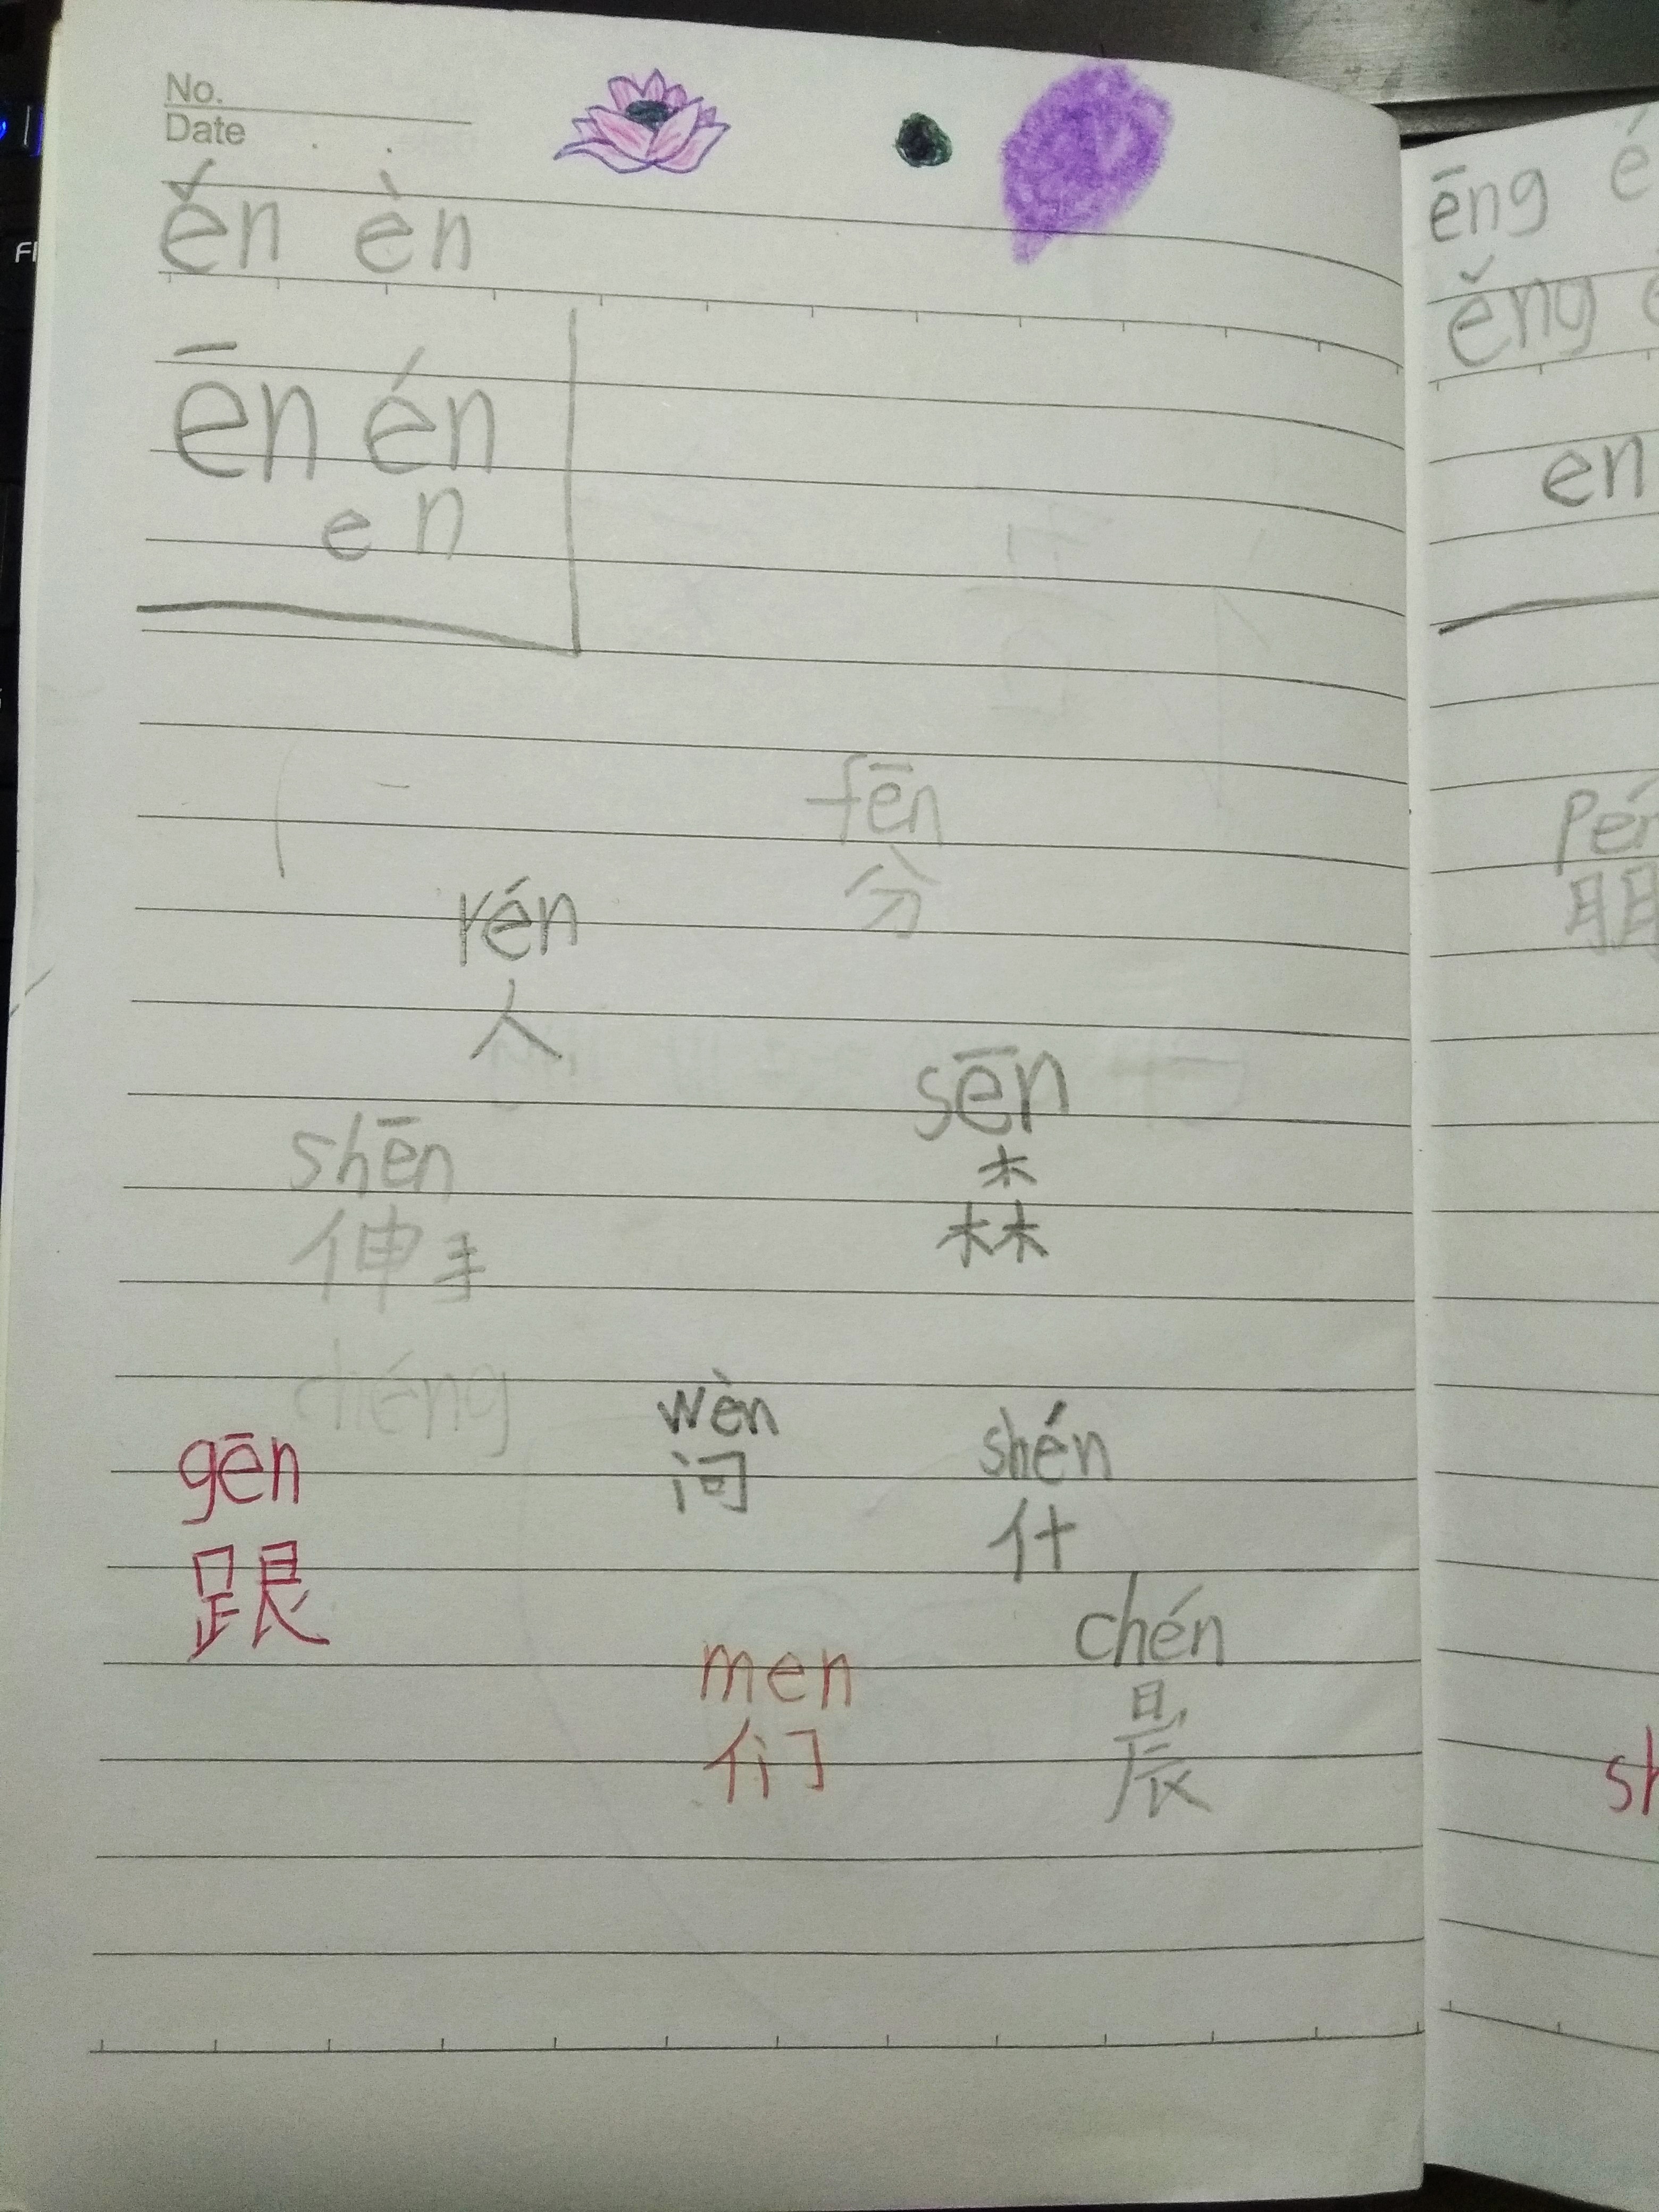 No.
Date
ěn èn
ēn én
en
fēn
分
rén
人
sēn
森
shēn
伸手
chéng
wèn
问
shén
什
gēn
跟
men
们
chén
晨
ēng é
ěng
en
pén
朋
sh